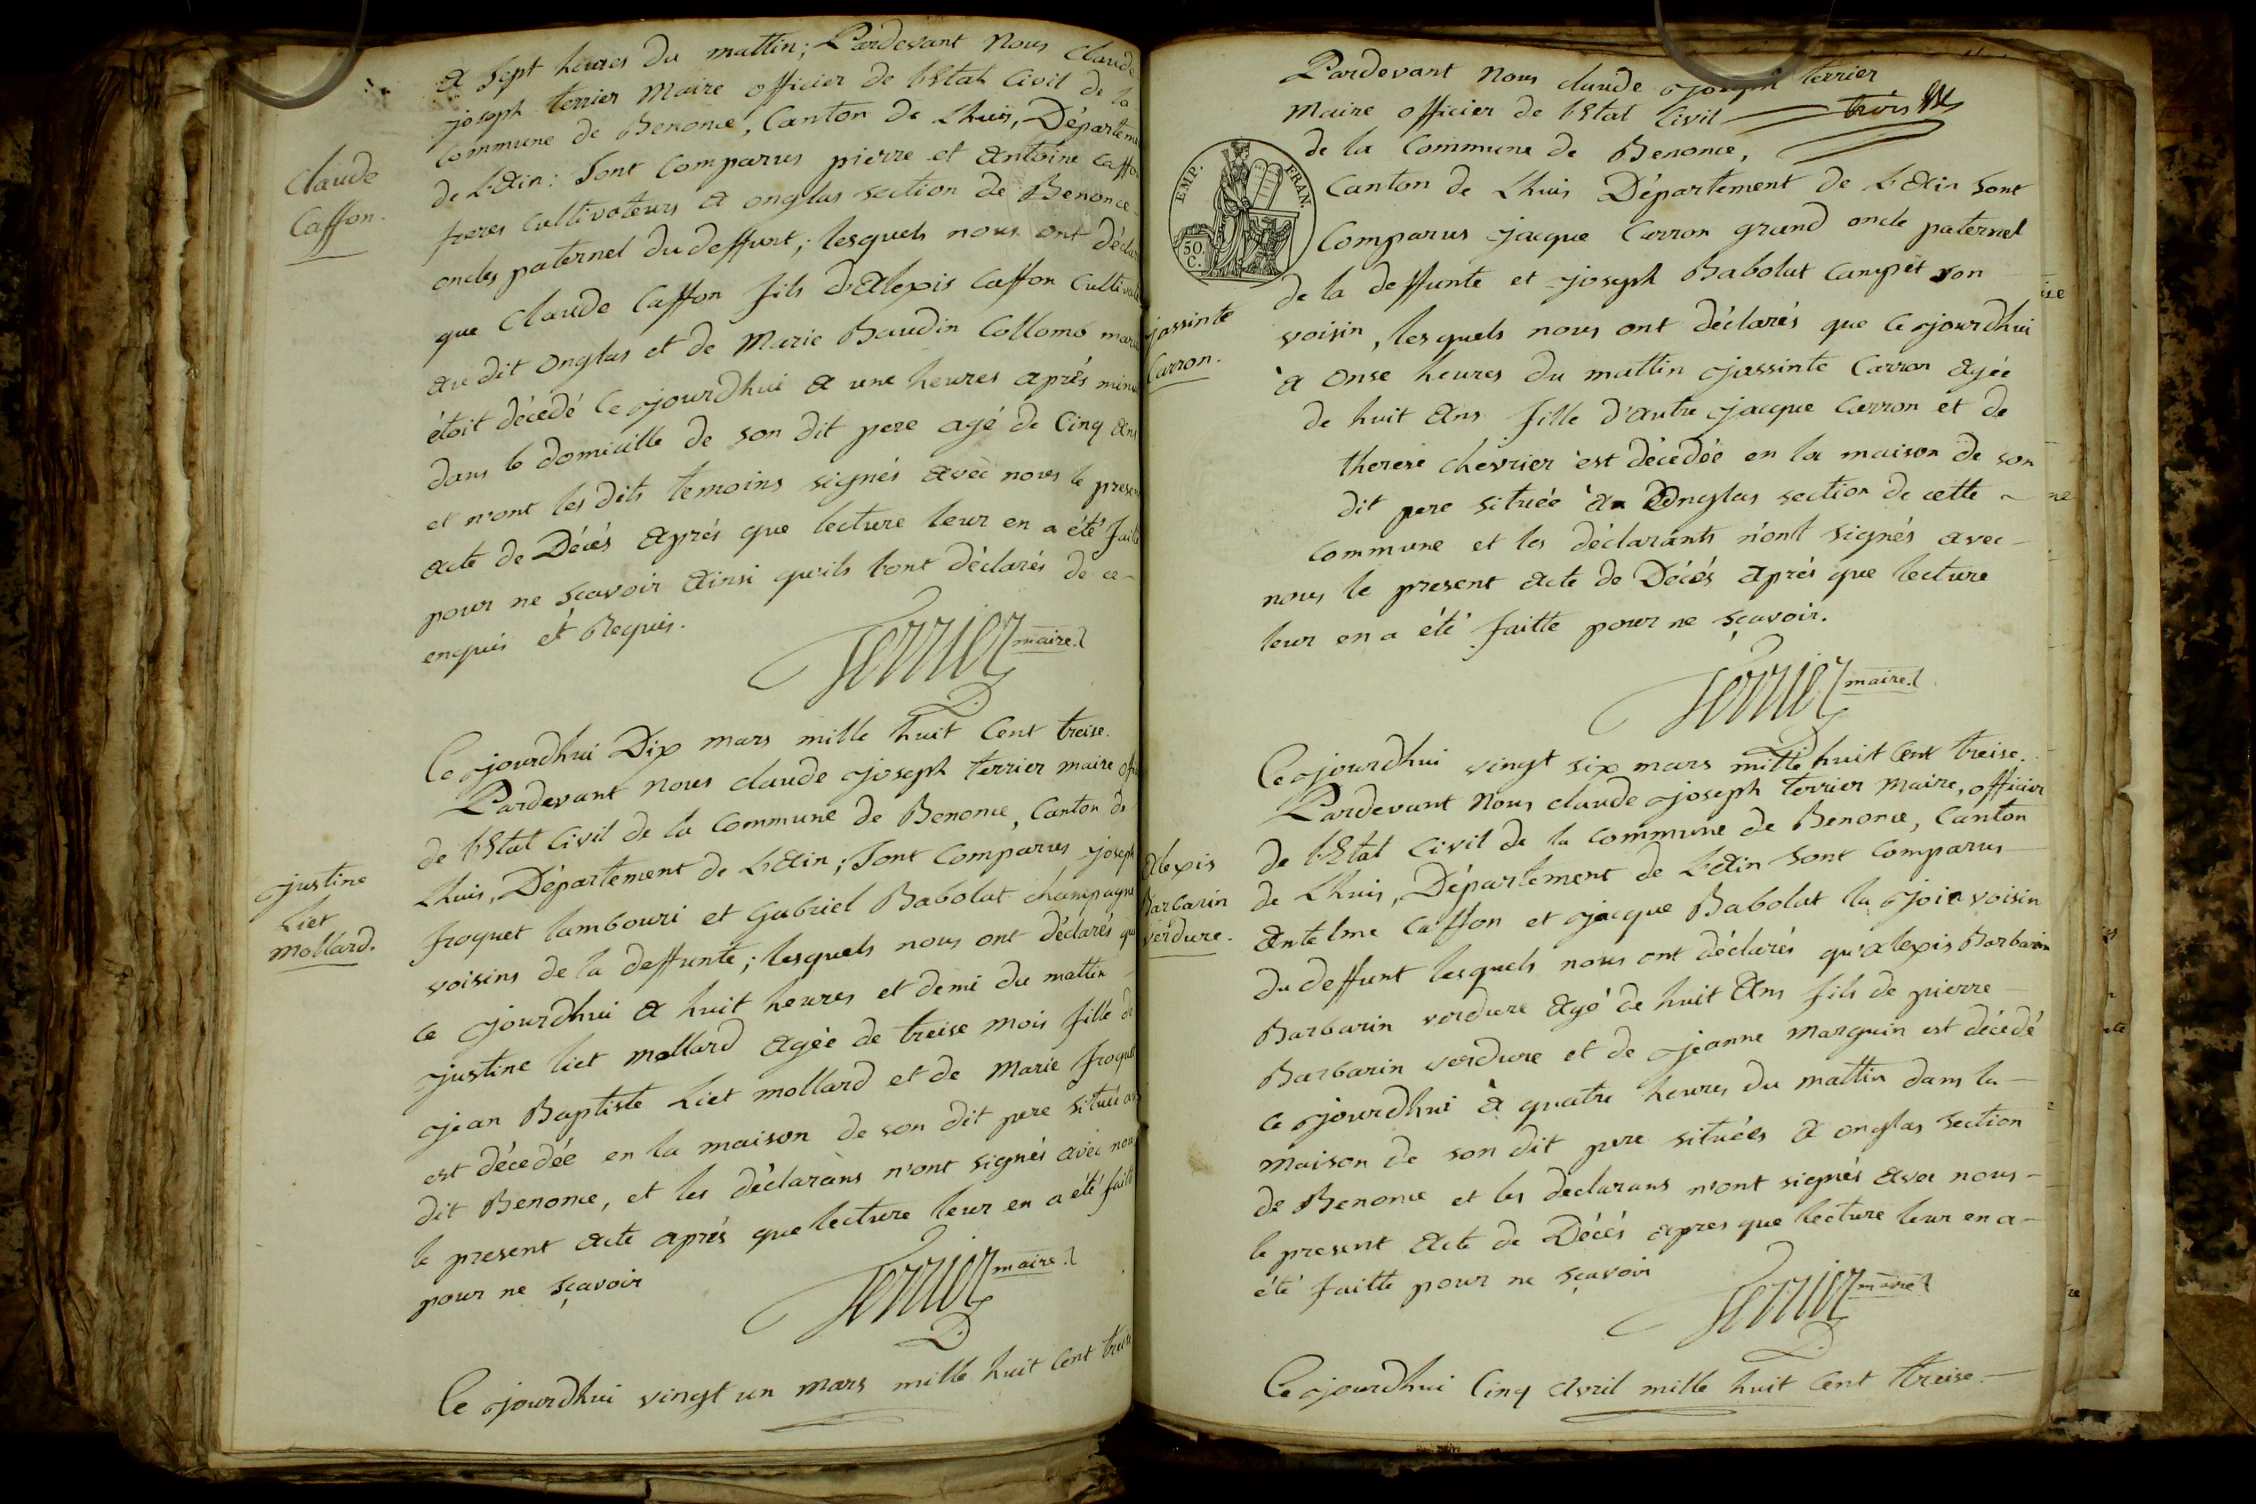 a sept heures du mattin; Pardevant Nous Claude
joseph terrier Maire officier de l'Etat Civil de la
commune de Benonce, Canton de Lhuis, Départeme
de L'Ain: Sont Comparus pierre et Antoine Caffo
freres cultivateurs a onglas section de Benonce
oncles paternel du deffunt; lesquels nous ont déclar
que Claude Caffon fils d'Alexis Caffon Cultivat
au dit onglas et de Marie Baudin Collomé mari
étoit décedé Ce jourdhui a une heures après minu
dans le domicille de son dit pere agé de Cinq ans
et n'ont les dits temoins signés avec nous le presen
acte de Décès après que lecture leur en a été faite
pour ne sçavoir ainsi qu'ils l'ont déclarés de ce
enquis et Requis.
Terrier maire
Claude
Caffon.
Ce jourdhui Dix mars mille huit Cent treise.
Pardevant nous claude joseph terrier maire offi
de l'Etat Civil de la Commune de Benonce, Canton de
Lhuis, Département de L'Ain; Sont Comparus joseph
froquet lambouri et Gabriel Babolat champagne
voisins de la deffunte; lesquels nous ont déclarés que
ce jourdhui a huit heures et demi du mattin
justine liet mollard agée de treise mois fille de
jean Baptiste Liet mollard et de Marie froquet
est décedée en la maison de son dit pere située au
dit Benonce, et les déclarans n'ont signés avec nous
le present acte après que lecture leur en a été faite
pour ne sçavoir
Terrier maire
justine
Liet
mollard.
Ce jourdhui vingt un mars mille huit Cent treise
Pardevant Nous claude joseph terrier
Maire officier de l'Etat Civil trois
de la Commune de Benonce,
Canton de Lhuis Département de L'Ain Sont
Comparus jacque Carron grand oncle paternel
de la deffunte et joseph Babolat Campet son
voisin, lesquels nous ont déclarés que Ce jourdhui
à onse heures du mattin jassinte Carron agée
de huit ans fille d'autre jacque Carron et de
therese chevrier est décedée en la maison de son
dit pere située a onglas section de cette
commune et les déclarants n'ont signés avec
nous le present acte de Décès après que lecture
leur en a été faitte pour ne sçavoir.
Terrier maire
EMP. FRAN.
50 C.
jassinte
Carron.
Ce jourdhui vingt six mars mille huit Cent treise.
Pardevant Nous claude joseph terrier Maire, officier
de l'Etat Civil de la commune de Benonce, Canton
de Lhuis, Département de L'Ain Sont Comparus
Antelme Caffon et jacque Babolat la joie voisin
du deffunt lesquels nous ont déclarés qu'alexis Barbarin
Barbarin verdure agé de huit Ans fils de pierre
Barbarin verdure et de jeanne marguin est décedé
ce jourdhui à quatre heures du mattin dans la
maison de son dit pere situées a onglas section
de Benonce et les declarans n'ont signés avec nous
le present acte de Décès apres que lecture leur en a
été faitte pour ne sçavoir
Terrier maire
Alexis
Barbarin
verdure.
Ce jourdhui Cinq Avril mille huit Cent treise.